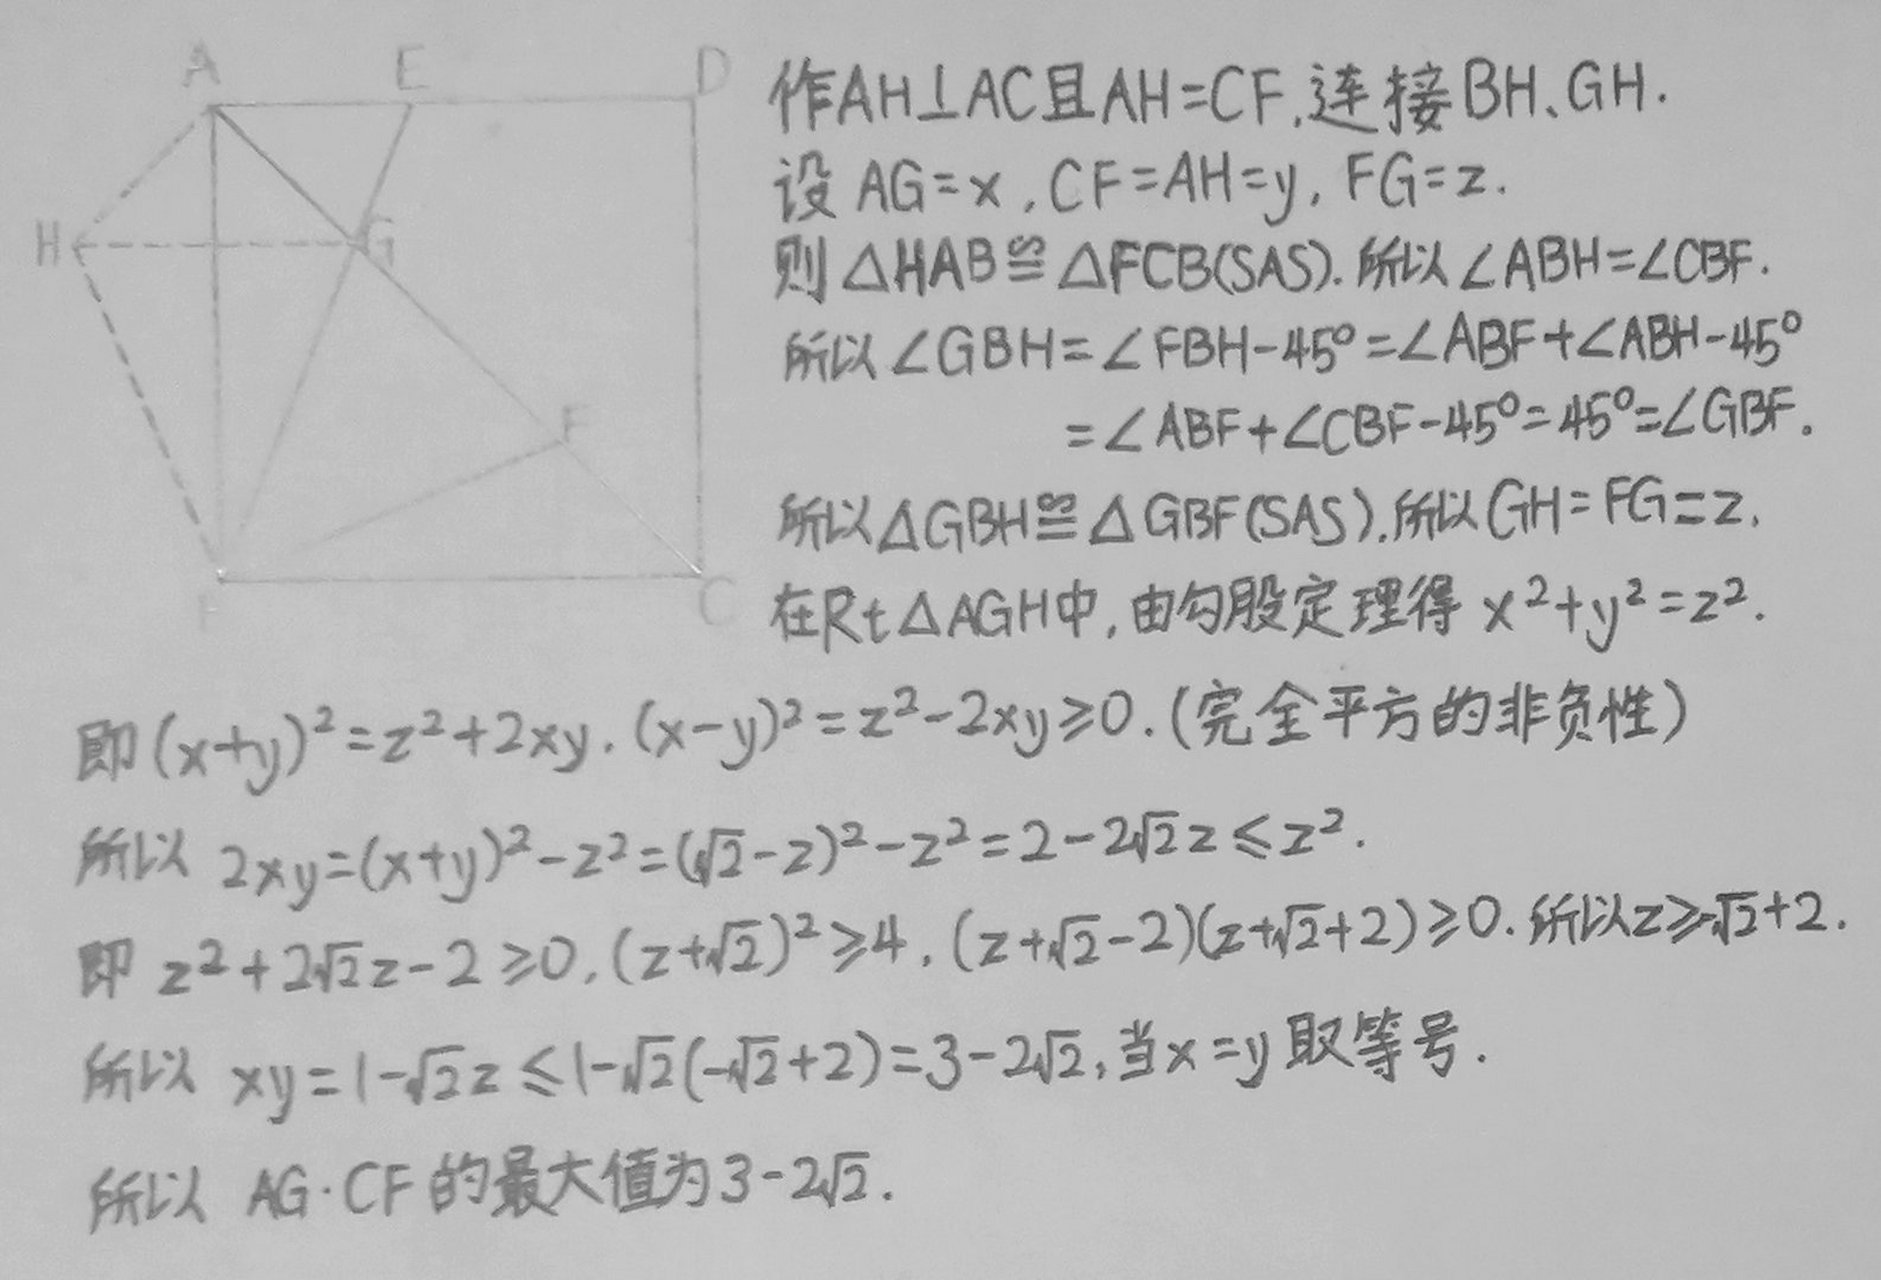 A E D
H G
F
B C
作AH⊥AC且AH=CF,连接BH、GH.
设 AG=x,CF=AH=y,FG=z.
则△HAB≌△FCB(SAS).所以∠ABH=∠CBF.
所以∠GBH=∠FBH-45°=∠ABF+∠ABH-45°
=∠ABF+∠CBF-45°=45°=∠GBF.
所以△GBH≌△GBF(SAS).所以GH=FG=z.
在Rt△AGH中,由勾股定理得 x²+y²=z².
即(x+y)²=z²+2xy.(x-y)²=z²-2xy≥0.(完全平方的非负性)
所以 2xy=(x+y)²-z²=(√2-z)²-z²=2-2√2z≤z².
即 z²+2√2z-2≥0,(z+√2)²≥4,(z+√2-2)(z+√2+2)≥0.所以z≥-√2+2.
所以 xy=1-√2z≤1-√2(-√2+2)=3-2√2,当x=y取等号.
所以 AG·CF的最大值为3-2√2.